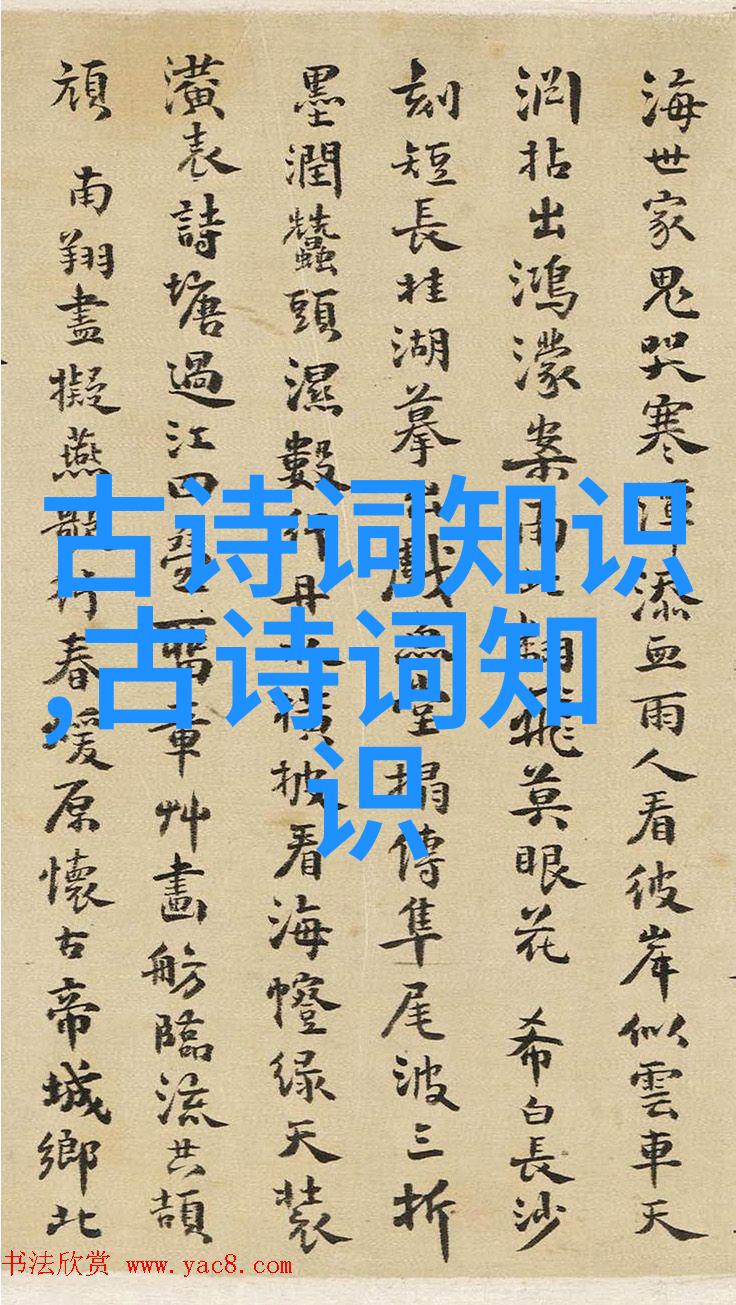 海世家鬼哭寒潭添血雨人看彼岸似雲車天
淵拈出鴻濛案
莫眼花 希白長沙
刻短長桂湖摹
戲
堂搨傳隼尾波三折
墨潤蠶頭濕數行丹
橫披看海幢绿天裝
潢表詩塘過江四
章艸畫舫臨流共頡
頏 南翔盡擬燕
行春暖原懷古帝城鄉北
古诗词知识
,古诗词知
识
书法欣赏 www.yac8.com